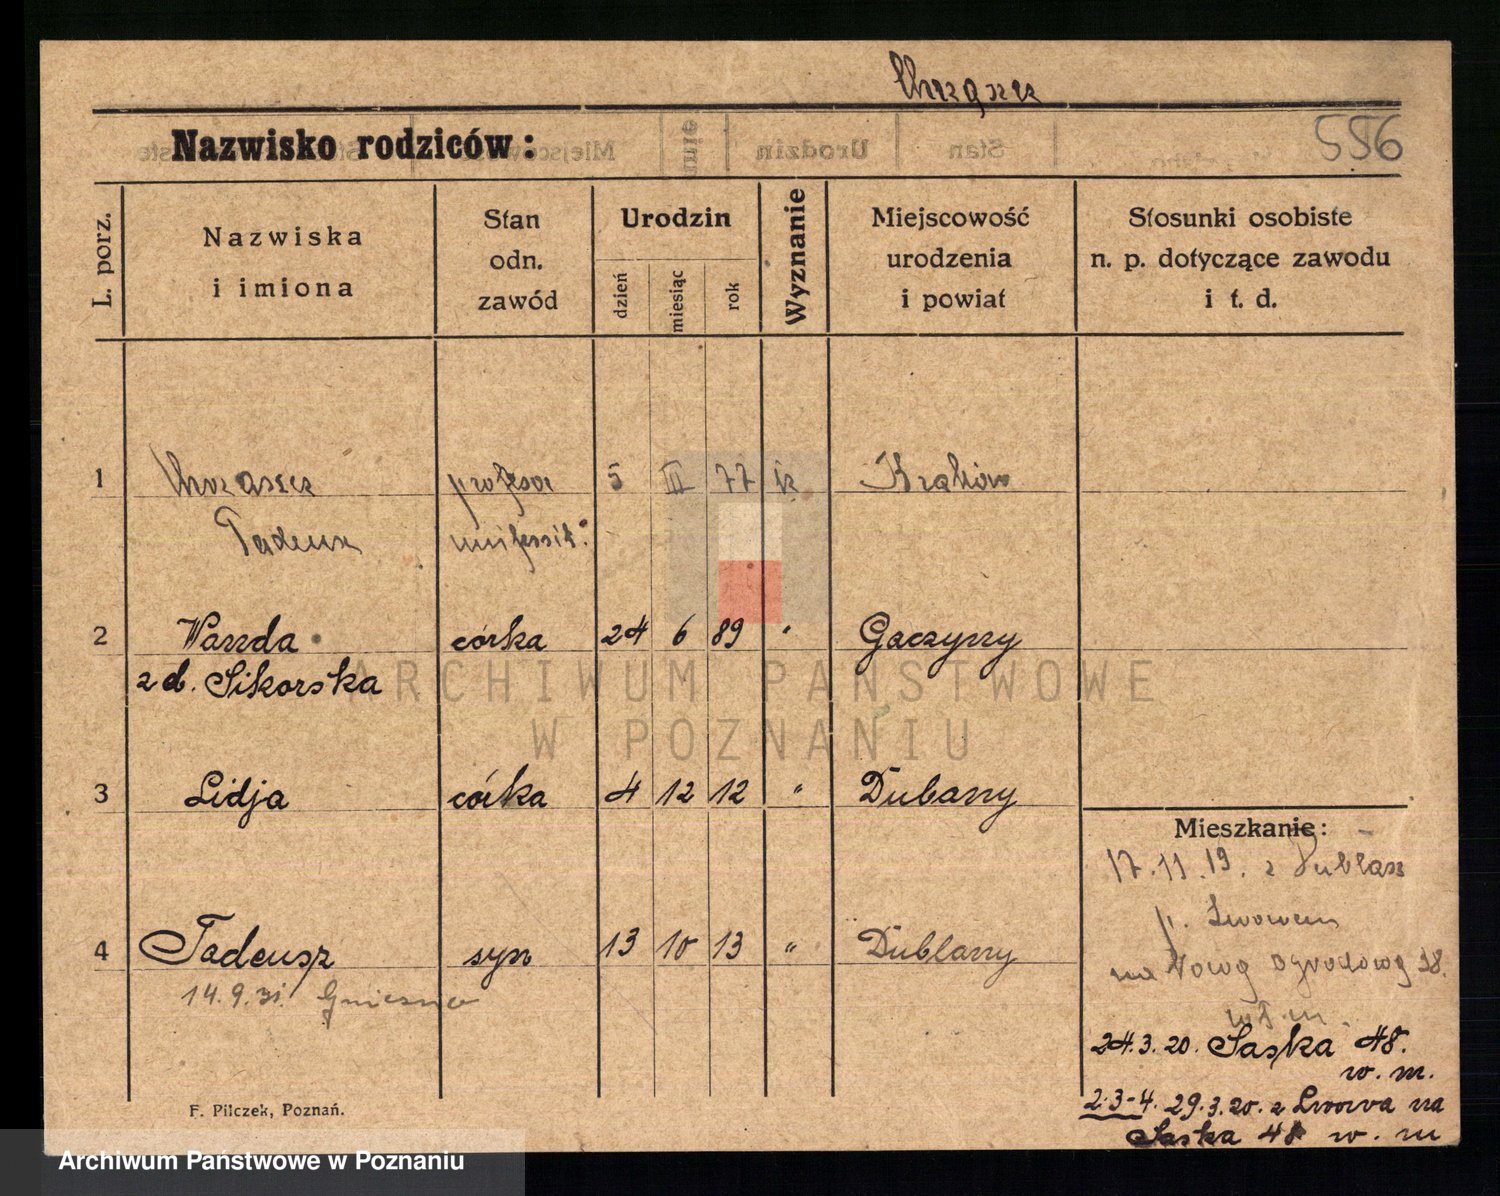 Chrząszcz
556
Nazwisko rodziców:
L. porz.
Nazwiska
i imiona
Stan
odn.
zawód
Urodzin
dzień
miesiąc
rok
Wyznanie
Miejscowość
urodzenia
i powiat
Stosunki osobiste
n. p. dotyczące zawodu
i t. d.
1 profesor 5 77 Kraków
Tadeusz
2 Wanda córka 24 6 89 " Gaczyny
z d. Sikorska
3 Lidja córka 4 12 12 " Dubany
4 Tadeusz syn 13 10 13 " Dublany
14.9.31. Gniezno
Mieszkanie:
17.11.19. z Dublan
p. Lwowem
na Nową Ogrodową 18.
24.3.20. Saska 48.
w. m.
2.3-4. 29.3.20. z Lwowa na
Saska 48 w. m
F. Pilczek, Poznań.
ARCHIWUM PAŃSTWOWE
W POZNANIU
Archiwum Państwowe w Poznaniu